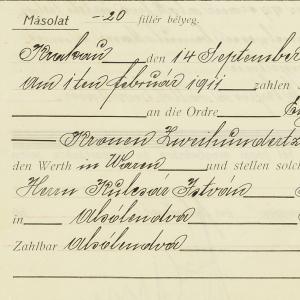 Másolat -20 fillér bélyeg.
Krakau den 14 September
Am 1ten februar 1911 zahlen
an die Ordre
Kronen Zweihundertz
den Werth in Waren und stellen solch
Herrn Kulcsár István
in Alsólendva
Zahlbar Alsólendva